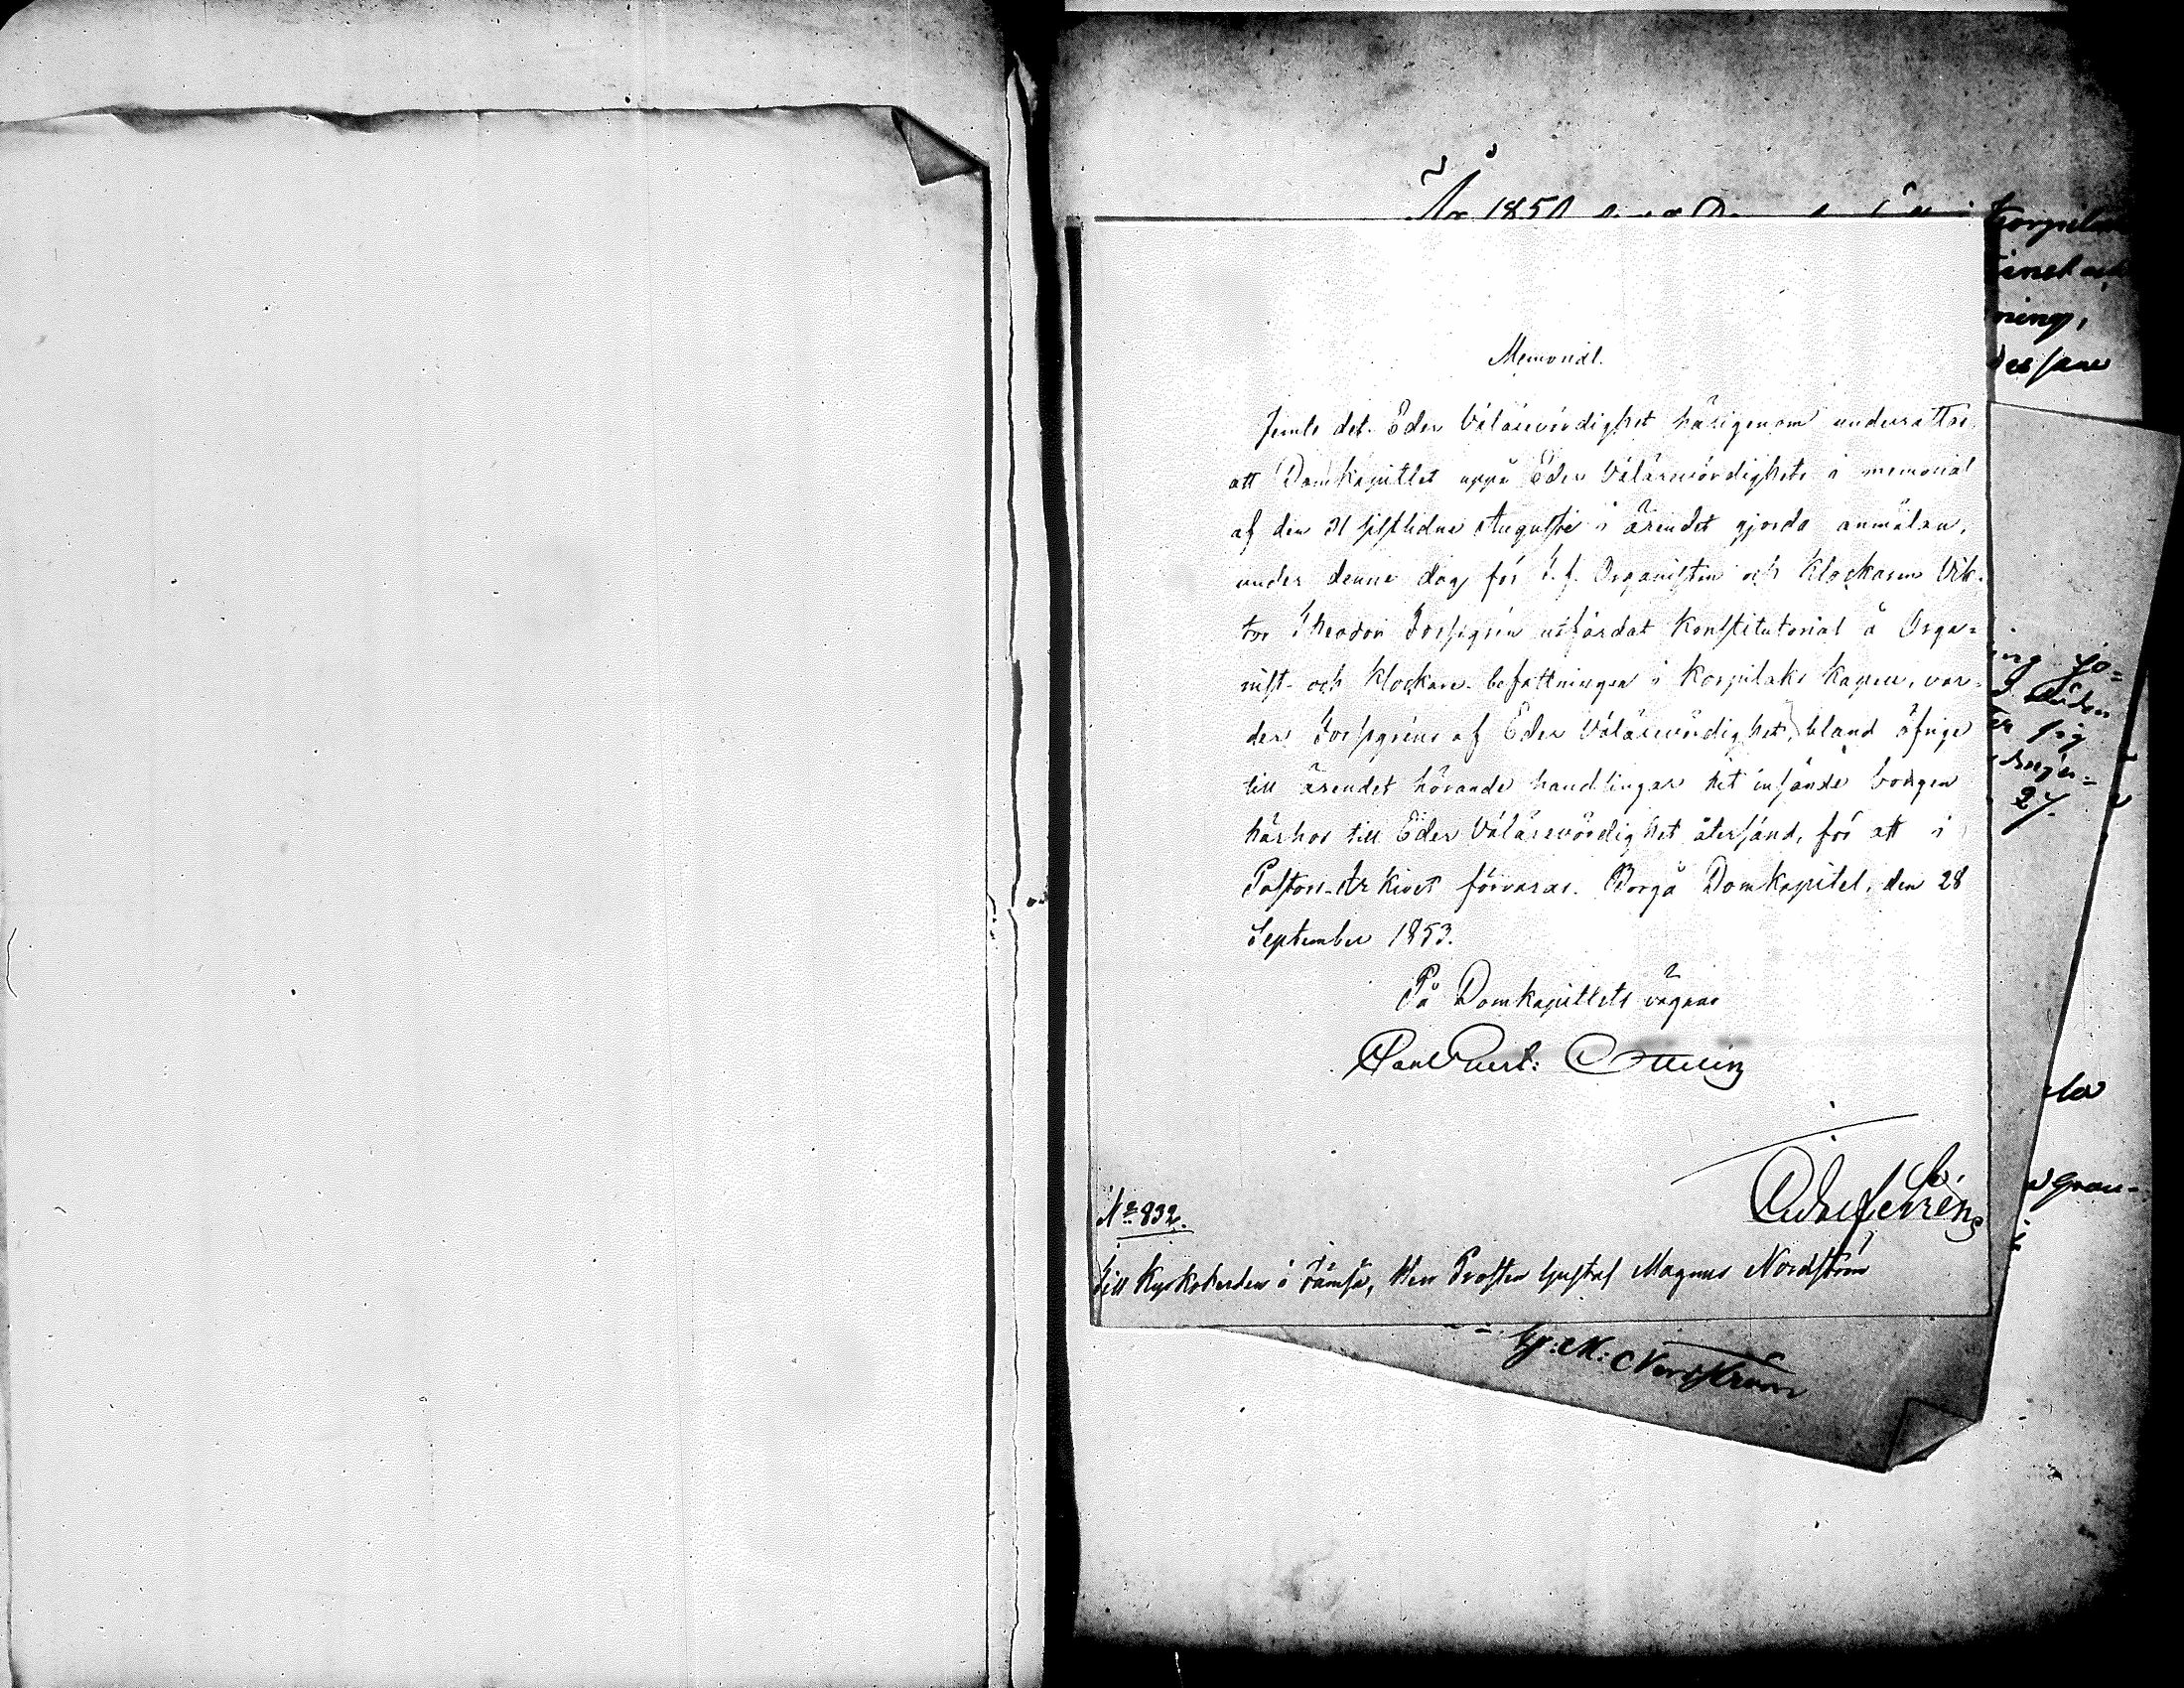 År 1850
Memorial.
Jemte det Eder Vålärevördighet härigenom underrättas
att Domkapitlet uppå Eder Vålärevördighets i memorial
af den 31 sistlidne Augusti i ärendet gjorda anmälan,
under denne dag för T. f. Organisten och Klockaren Vik-
tor Theodor utfärdat Konstitutorial å Orga=
nist- och Klockare-befattningen i Korpilaks Kapell, var-
der af Eder Vålärevördighet, bland öfrige
till ärendet hörande handlingar hit insände borgen
härhos till Eder Vålärevördighet återsänd, för att i
Pastors-Arkivet förvaras. Borgå Domkapitel, den 28
September 1853.
På Domkapitlets vägnar
No 832.
Till Kyrkoherden i Jämsä, Herr Prosten Gustaf Magnus Nordström
G: M: Nordström
ning,
27.